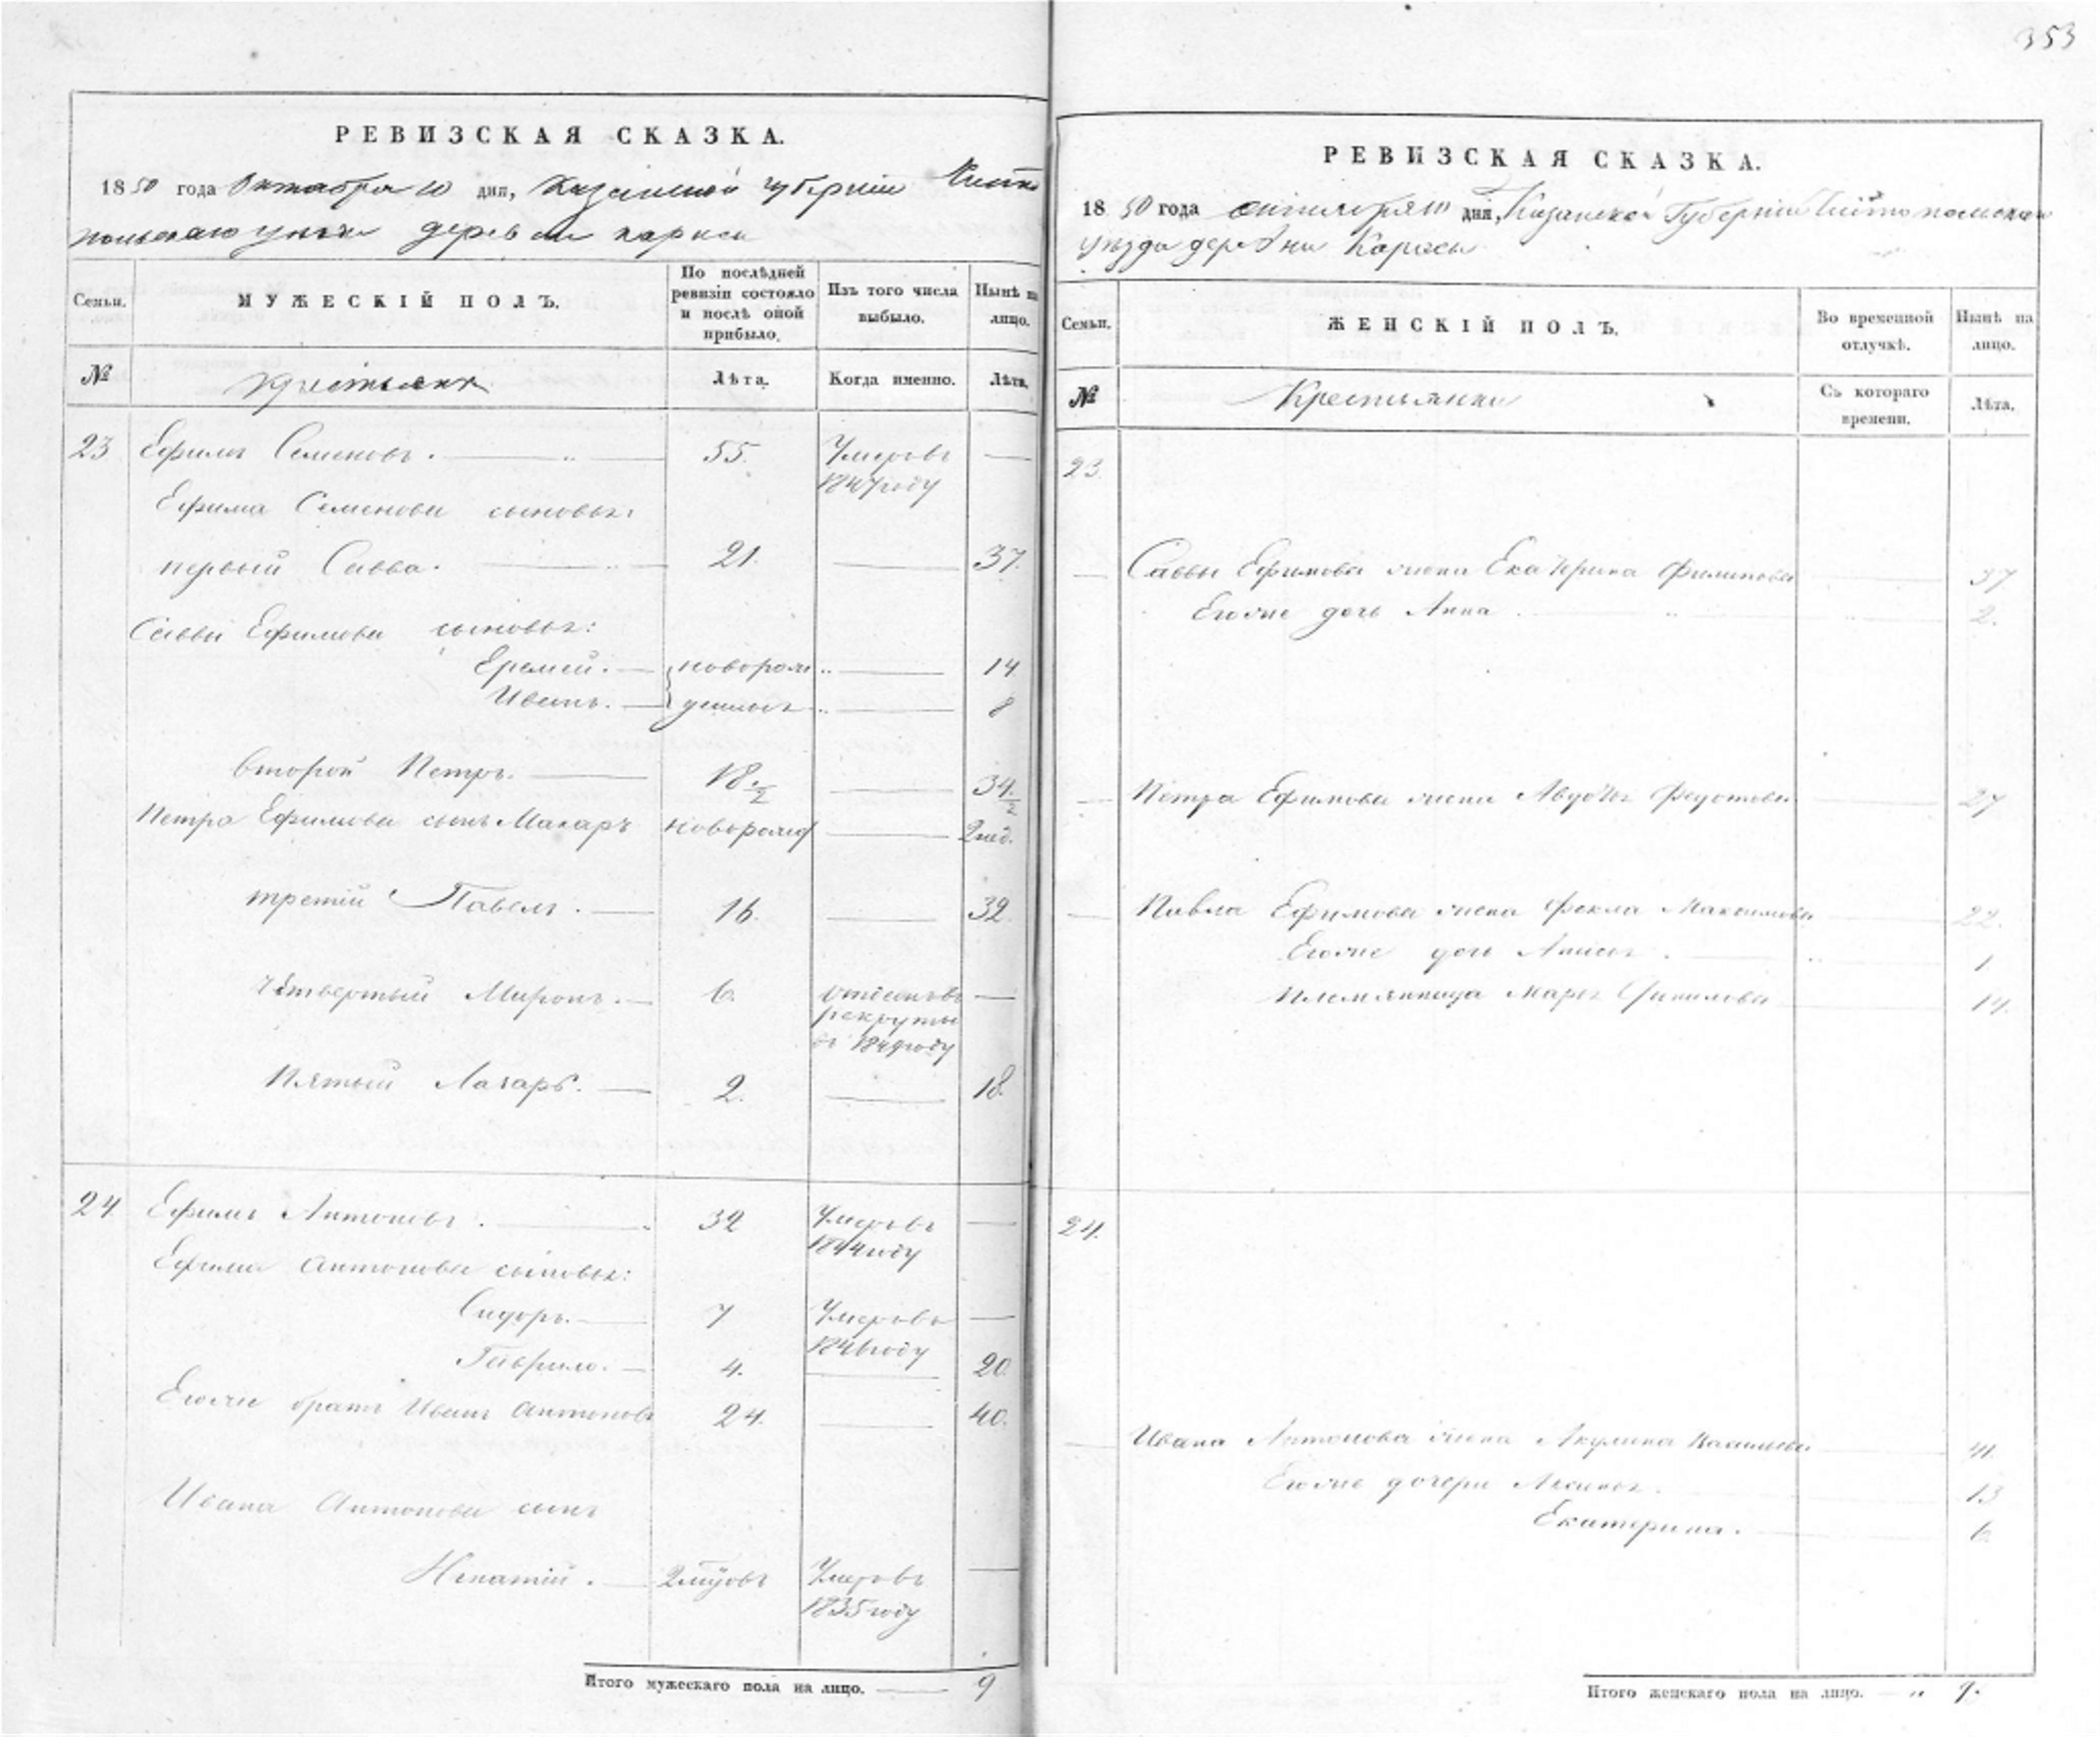 353
РЕВИЗСКАЯ СКАЗКА.
1850 года Октября 10 дня, Казанской губернии Чисто
польскаго уезда деревни Кариси
Семьи.
МУЖЕСКІЙ ПОЛЪ.
По послѣдней ревизіи состояло и послѣ оной прибыло.
Изъ того числа выбыло.
Нынѣ на лицо.
№
Крестьяне
Лѣта.
Когда именно.
Лѣта.
23 Ефимъ Семеновъ. 55. Умеръ въ 1847 году
Ефима Семенова сыновья:
первый Савва. 21. 37.
Саввы Ефимова сыновья:
Еремей. новорож 14
Иванъ. денные 8
второй Петръ. 18 1/2 34 1/2
Петра Ефимова сынъ Макаръ новорожд 2 нед.
третій Павелъ. 16. 32.
четвертый Миронъ. 6. отданъ въ рекруты въ 1849 году
пятый Лазарь. 2. 18.
24 Ефимъ Антоновъ. 32 Умеръ въ 1844 году
Ефима Антонова сыновья:
Сидоръ. 7 Умеръ въ 1846 году
Гаврило. 4. 20.
Его же братъ Иванъ Антоновъ 24. 40.
Ивана Антонова сынъ
Умеръ въ 1835 году
Итого мужескаго пола на лицо. 9
РЕВИЗСКАЯ СКАЗКА.
1850 года октября 10 дня, Казанской Губерніи Чистопольскаго
уезда деревни Кариси
Семьи.
ЖЕНСКІЙ ПОЛЪ.
Во временной отлучкѣ.
Нынѣ на лицо.
№
Крестьянки
Съ котораго времени.
Лѣта.
23.
Саввы Ефимова жена Екатерина Филипова 37
Его же дочь Анна 2.
Петра Ефимова жена Авдотья 27
Павла Ефимова жена Фекла Максимова 22.
Его же дочь 1
Племянница Марья 14.
24.
Ивана Антонова жена Акулина 41.
Его же дочери Аксинья 13
Екатерина. 6.
Итого женскаго пола на лицо. 9.